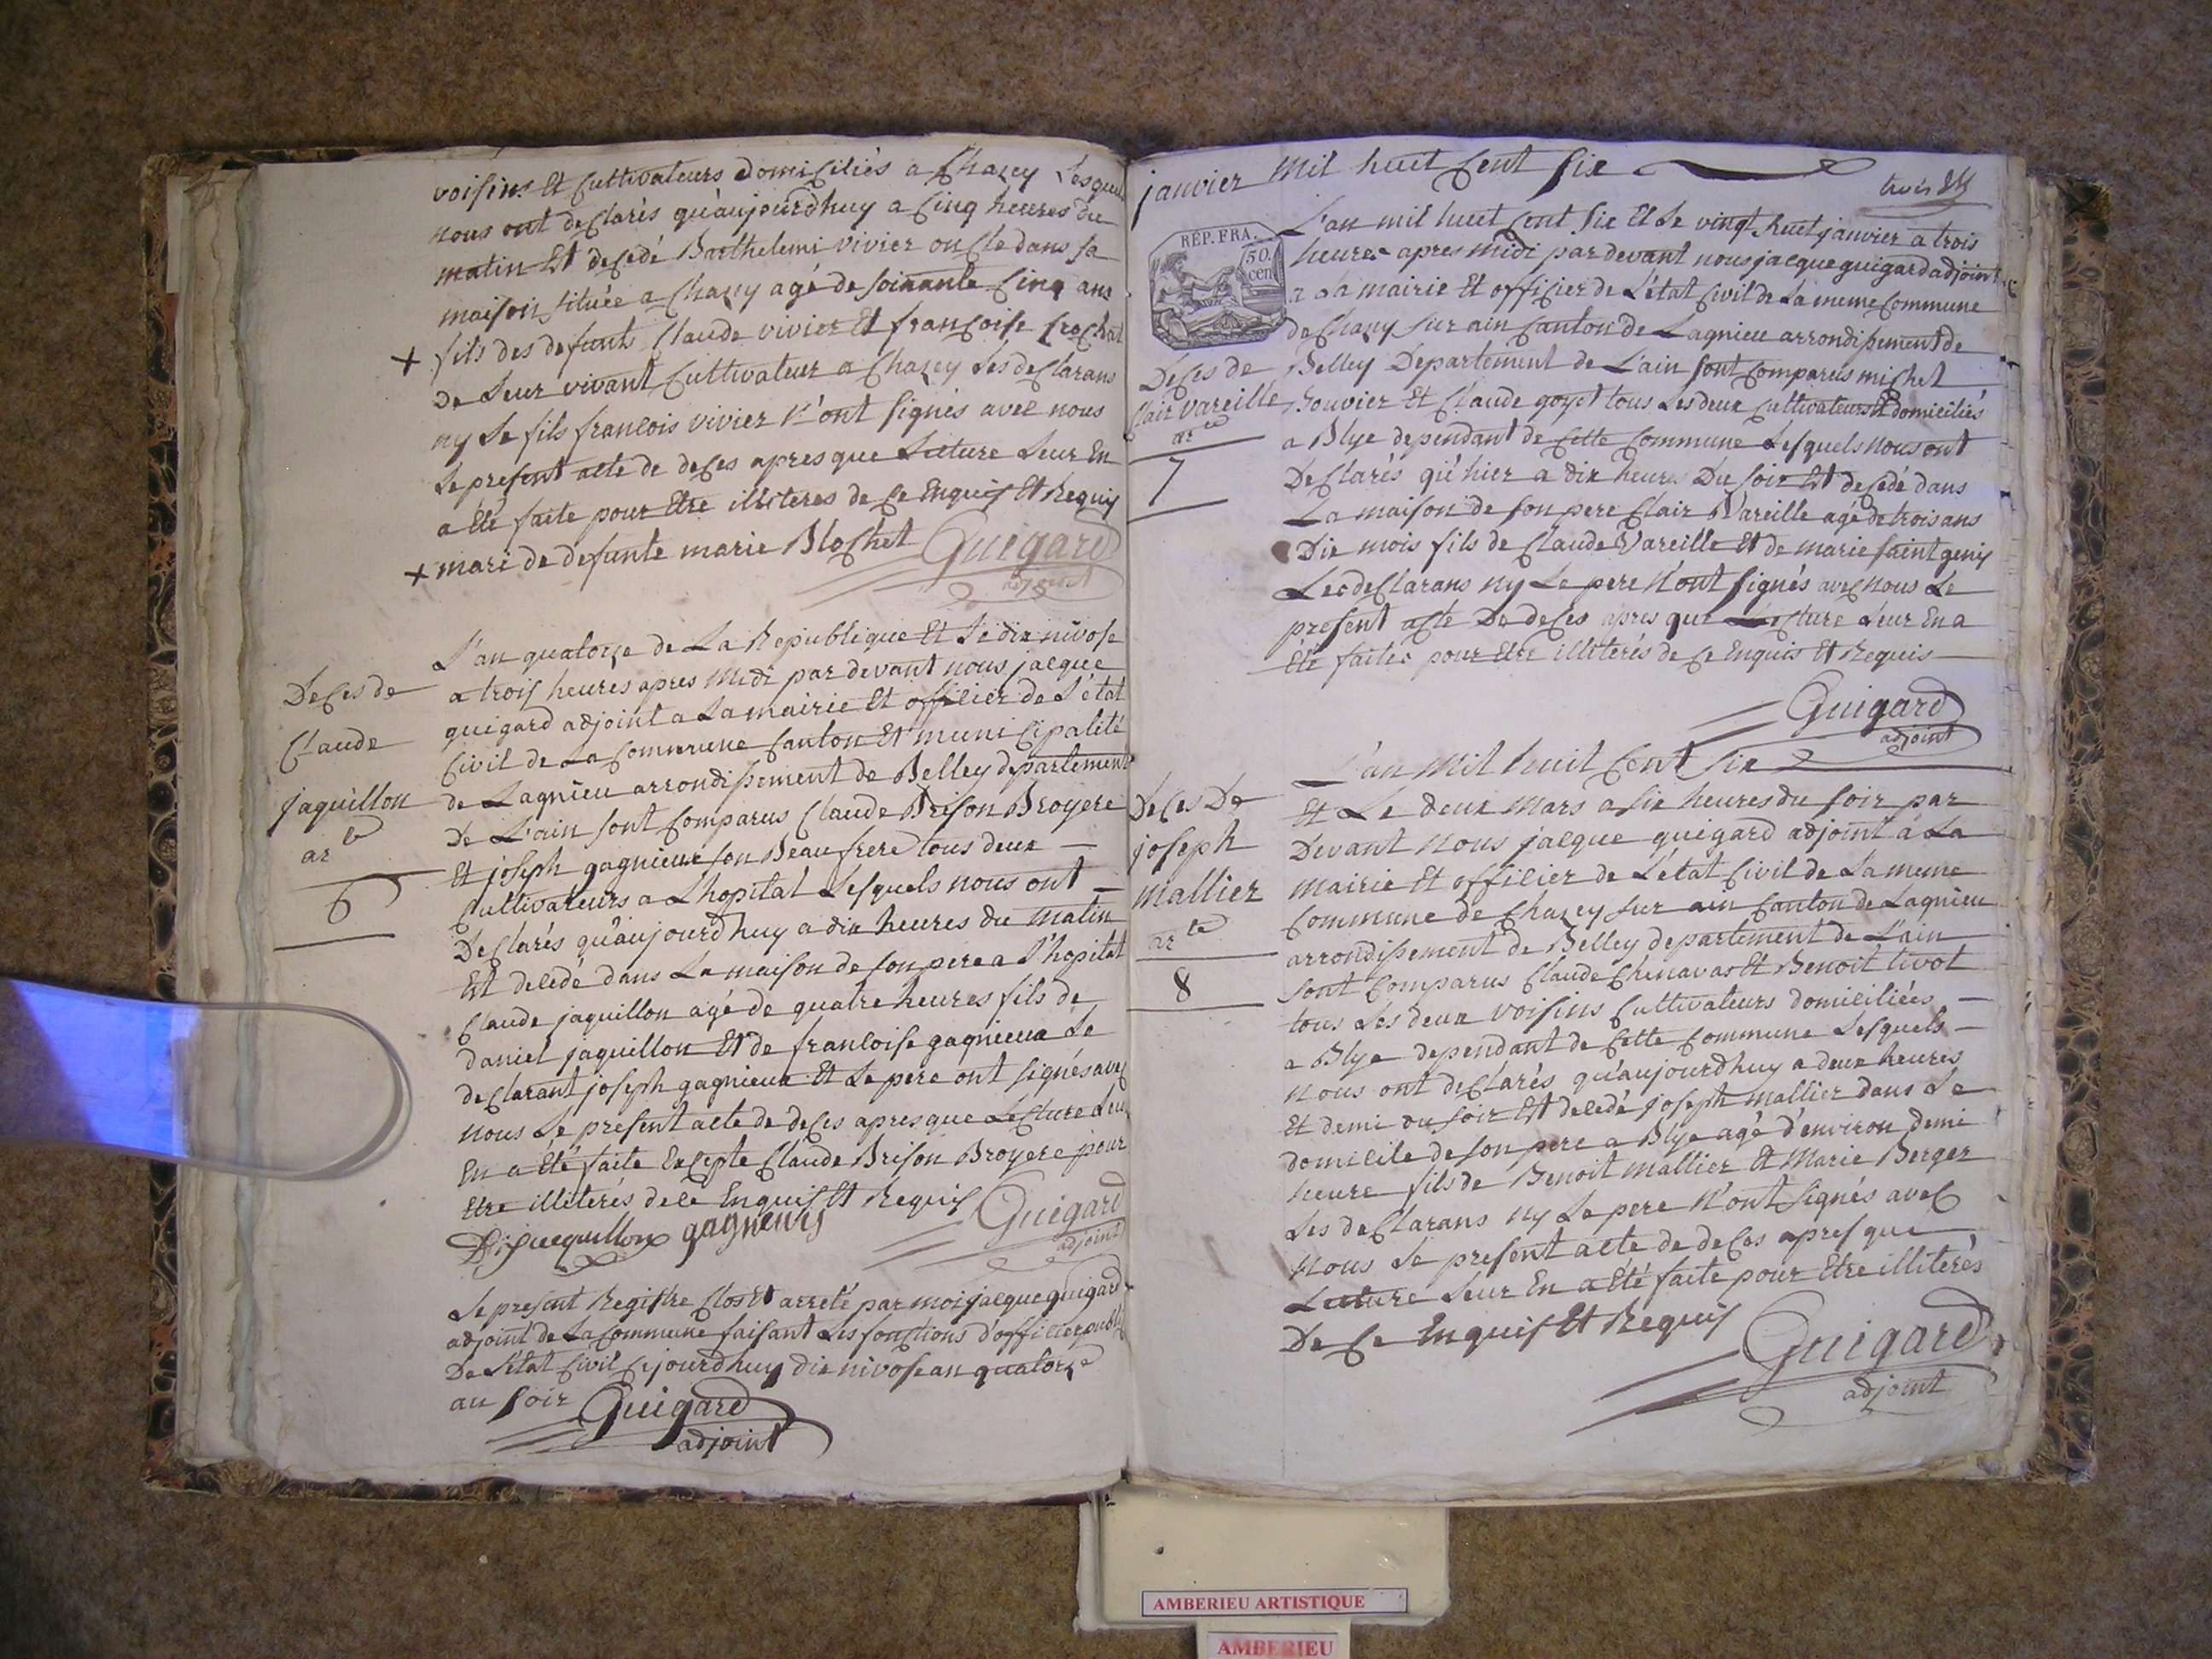 voisins Et Cultivateurs domiciliés a Chazey Lesquels
nous ont declarés qu'aujourd'huy a cinq heures du
matin Est decedé Barthelemi vivier oncle dans sa
maison située a Chazey agé de soixante cinq ans
+ fils des defunts Claude vivier Et francoise Crochat
de Leur vivant Cultivateur a Chazey Les declarans
ny Le fils francois vivier N'ont signés avec nous
Le present acte de deces apres que Lecture Leur En
a Eté faite pour Etre illiteres de ce Enquis Et Requis
+ mari de defunte marie Blochet Guigard
adjoint
Deces de
Claude
jaquillon
ar le
6
L'an quatorze de La Republique Et Le dix nivose
a trois heures apres Midi par devant nous jacque
guigard adjoint a La mairie Et officier de L'état
Civil de La Commune Canton Et municipalité
de Lagnieu arrondissement de Belley departement
De L'ain sont Comparus Claude Brison Broyere
Et joseph gagnieux son Beau frere tous deux
Cultivateurs a L'hopital Lesquels nous ont
Declarés qu'aujourd'huy a dix heures du matin
Est decedé dans La maison de son pere a L'hopital
Claude jaquillon agé de quatre heures fils de
daniel jaquillon Et de francoise gagnieux Le
declarant joseph gagnieux Et Le pere ont signés avec
nous Le present acte de deces apres que Lecture Leur
En a Eté faite Excepte Claude Brison Broyere pour
Etre illiterés de ce Enquis Et Requis Guigard
adjoint
Djacquillon gagneux
Le present Registre Clos Et arreté par moi jacque guigard
adjoint de La Commune faisant Les fonctions d'officier public
De L'état Civil Cejourd'huy dix nivose an quatorze
au soir Guigard
adjoint
janvier Mil huit Cent six
trois
RÉP. FRA.
50.
cen
Deces de
Clair Vareille
ar le
7
L'an mil huit Cent six Et Le vingt huit janvier a trois
heures apres midi par devant nous jacque guigard adjoint
a La mairie Et officier de L'état Civil de La meme Commune
de Chazey sur ain Canton de Lagnieu arrondissement de
Belley Departement de L'ain sont Comparus michel
Bouvier Et Claude goyet tous Les deux Cultivateurs Et domiciliés
a Blye dependant de Cette Commune Lesquels nous ont
Declarés qu'hier a dix heures Du soir Est decedé dans
La maison de son pere Clair Vareille agé de trois ans
Dix mois fils de Claude Vareille Et de marie saint genis
Les declarans ny Le pere N'ont signés avec nous Le
present acte De deces apres que Lecture Leur En a
Eté faites pour Etre illiterés de ce Enquis Et Requis
Guigard
adjoint
Deces De
joseph
mallier
ar le
8
L'an Mil huit Cent six
Et Le deux Mars a six heures du soir par
Devant Nous jacque guigard adjoint à La
mairie Et officier de L'état Civil de La meme
Commune de Chazey sur ain Canton de Lagnieu
arrondissement de Belley departement de L'ain
sont Comparus Claude Chenavas Et Benoit tivot
tous Les deux voisins Cultivateurs domiciliées
a Blye dependant de Cette Commune Lesquels
nous ont declarés qu'aujourd'huy a deux heures
Et demi du soir Est decedé joseph mallier dans Le
domicile de son pere a Blye agé d'environ demi
heure fils de Benoit Mallier Et Marie Berger
Les declarans ny Le pere N'ont signés avec
Nous Le present acte de deces apres que
Lecture Leur En a Eté faite pour Etre illiterés
De Ce Enquis Et Requis Guigard
adjoint
AMBERIEU ARTISTIQUE
AMBERIEU